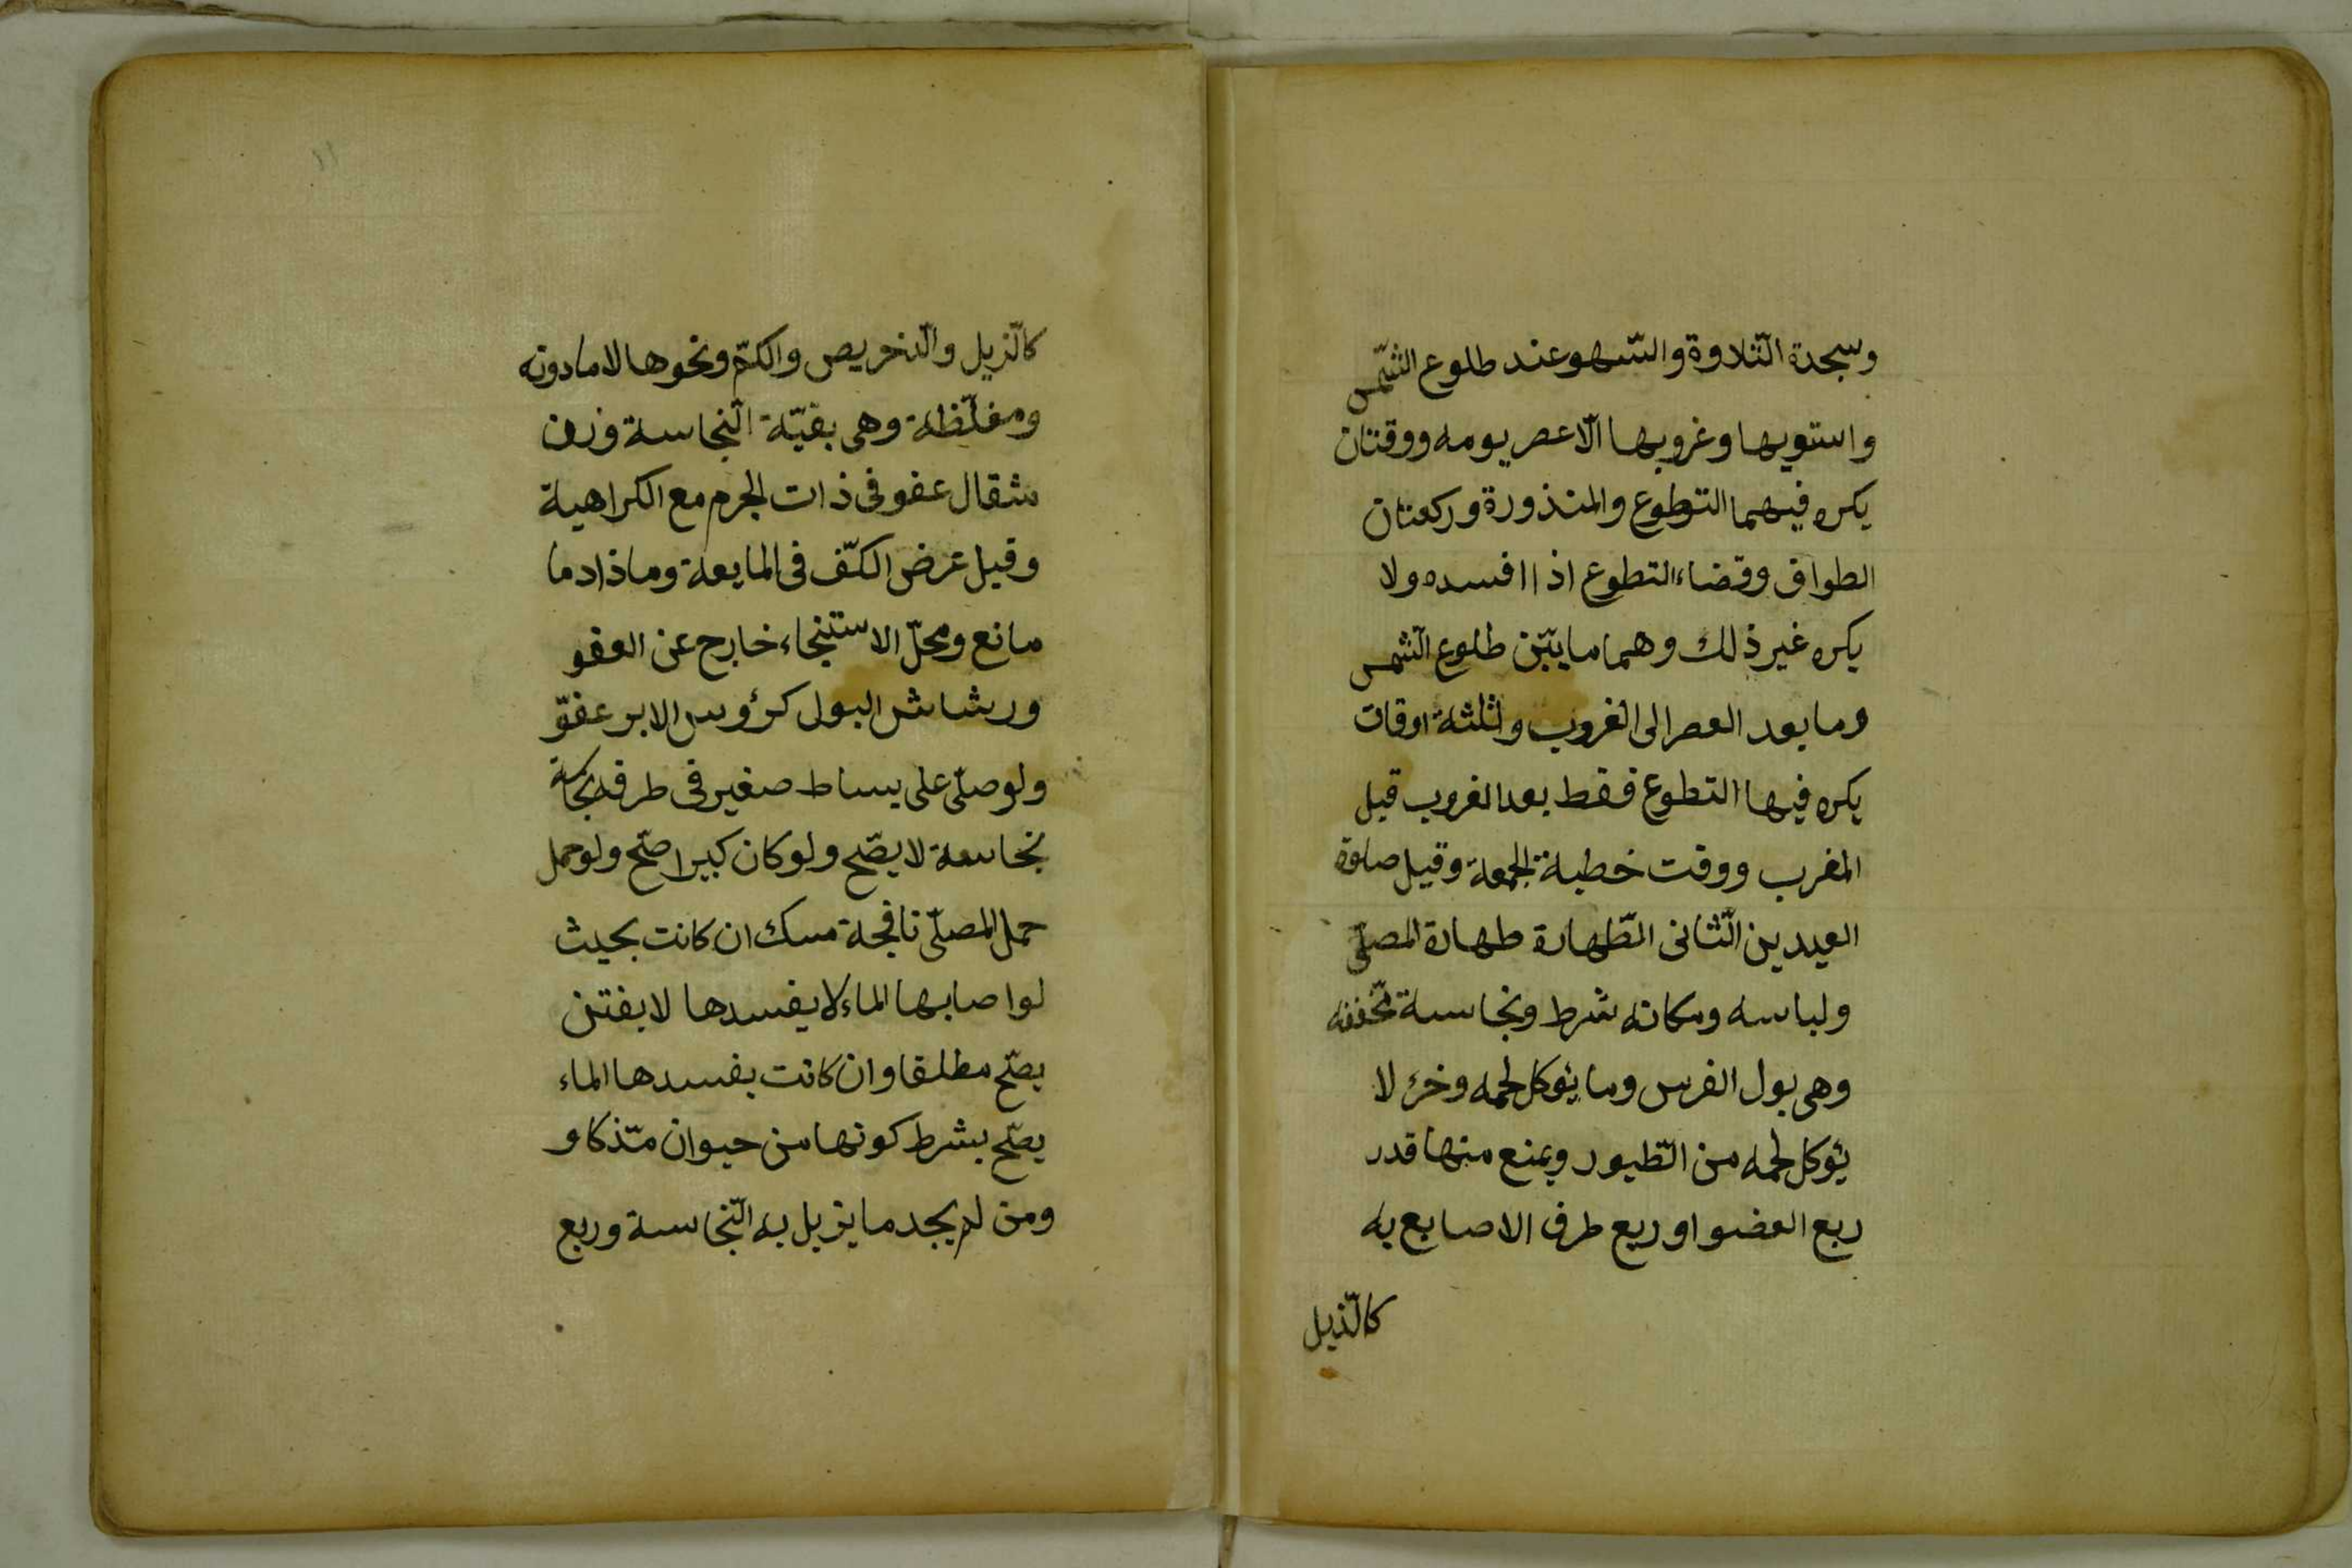 وسجدة التّلاوة والسّهو عند طلوع الشّمس
واستويها وغروبها الّا عصر يومه ووقتان
يكره فيهما التطوع والمنذورة وركعتان
الطواف وقضاء التطوع اذا افسده ولا
يكره غير ذلك وهما ما بيّن طلوع الشّمس
وما بعد العصر الى الغروب وثلثة اوقات
يكره فيها التطوع فقط بعد الغروب قبل
المغرب ووقت خطبة الجمعة وقبل صلوة
العيدين الثّانى الطّهارة طهارة المصلّى
ولباسه ومكانه شرط ونجاسة مخّففه
وهى بول الفرس وما يؤكل لحمه وخرء لا
يؤكل لحمه من الطّيور ويمنع منها قدر
ربع العضو او ربع طرف الاصابع به
كالّذيل
كالّزيل والّدخريص والكمّ ونحوها لا مادونه
ومغلّظة وهى بقيّة النّجاسة وزن
مثقال عفو فى ذات الجرم مع الكراهية
وقيل عرض الكفّ فى المايعة وماذاد ما
مانع ومحلّ الاستنجاء خارج عن العفو
ورشاش البول كرؤس الابر عفوّ
ولو صلّى على بساط صغير فى طرفه نجاسة
نجاسة لا يصّح ولو كان كبيرا صّح ولو حمل
حمل المصلّى نافجة مسك ان كانت بحيث
لو اصابها الماء لا يفسدها لا بفتن
يصّح مطلقا وان كانت يفسدها الماء
يصّح بشرط كونها من حيوان مذّكا و
ومن لم يجد ما يزيل به النّجاسة وربع